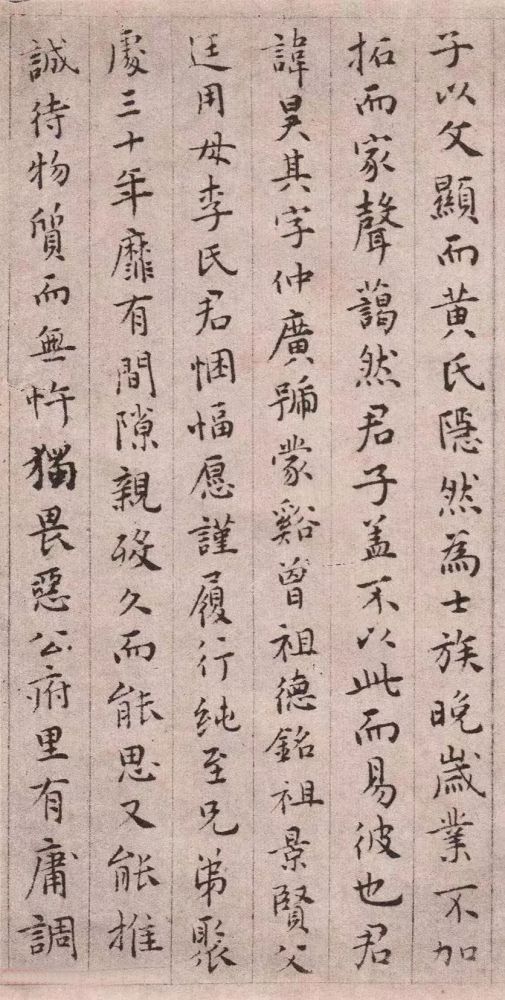 子以父顯而黃氏隱然為士族晚歲業不加
拓而家聲藹然君子盖不以此而易彼也君
諱昊其字仲廣號蒙谿曾祖德銘祖景賢父
廷用母李氏君悃愊愿謹履行純至兄弟聚
處三十年靡有間隙親歿久而能思又能推
誠待物質而無忤獨畏惡公府里有庸調